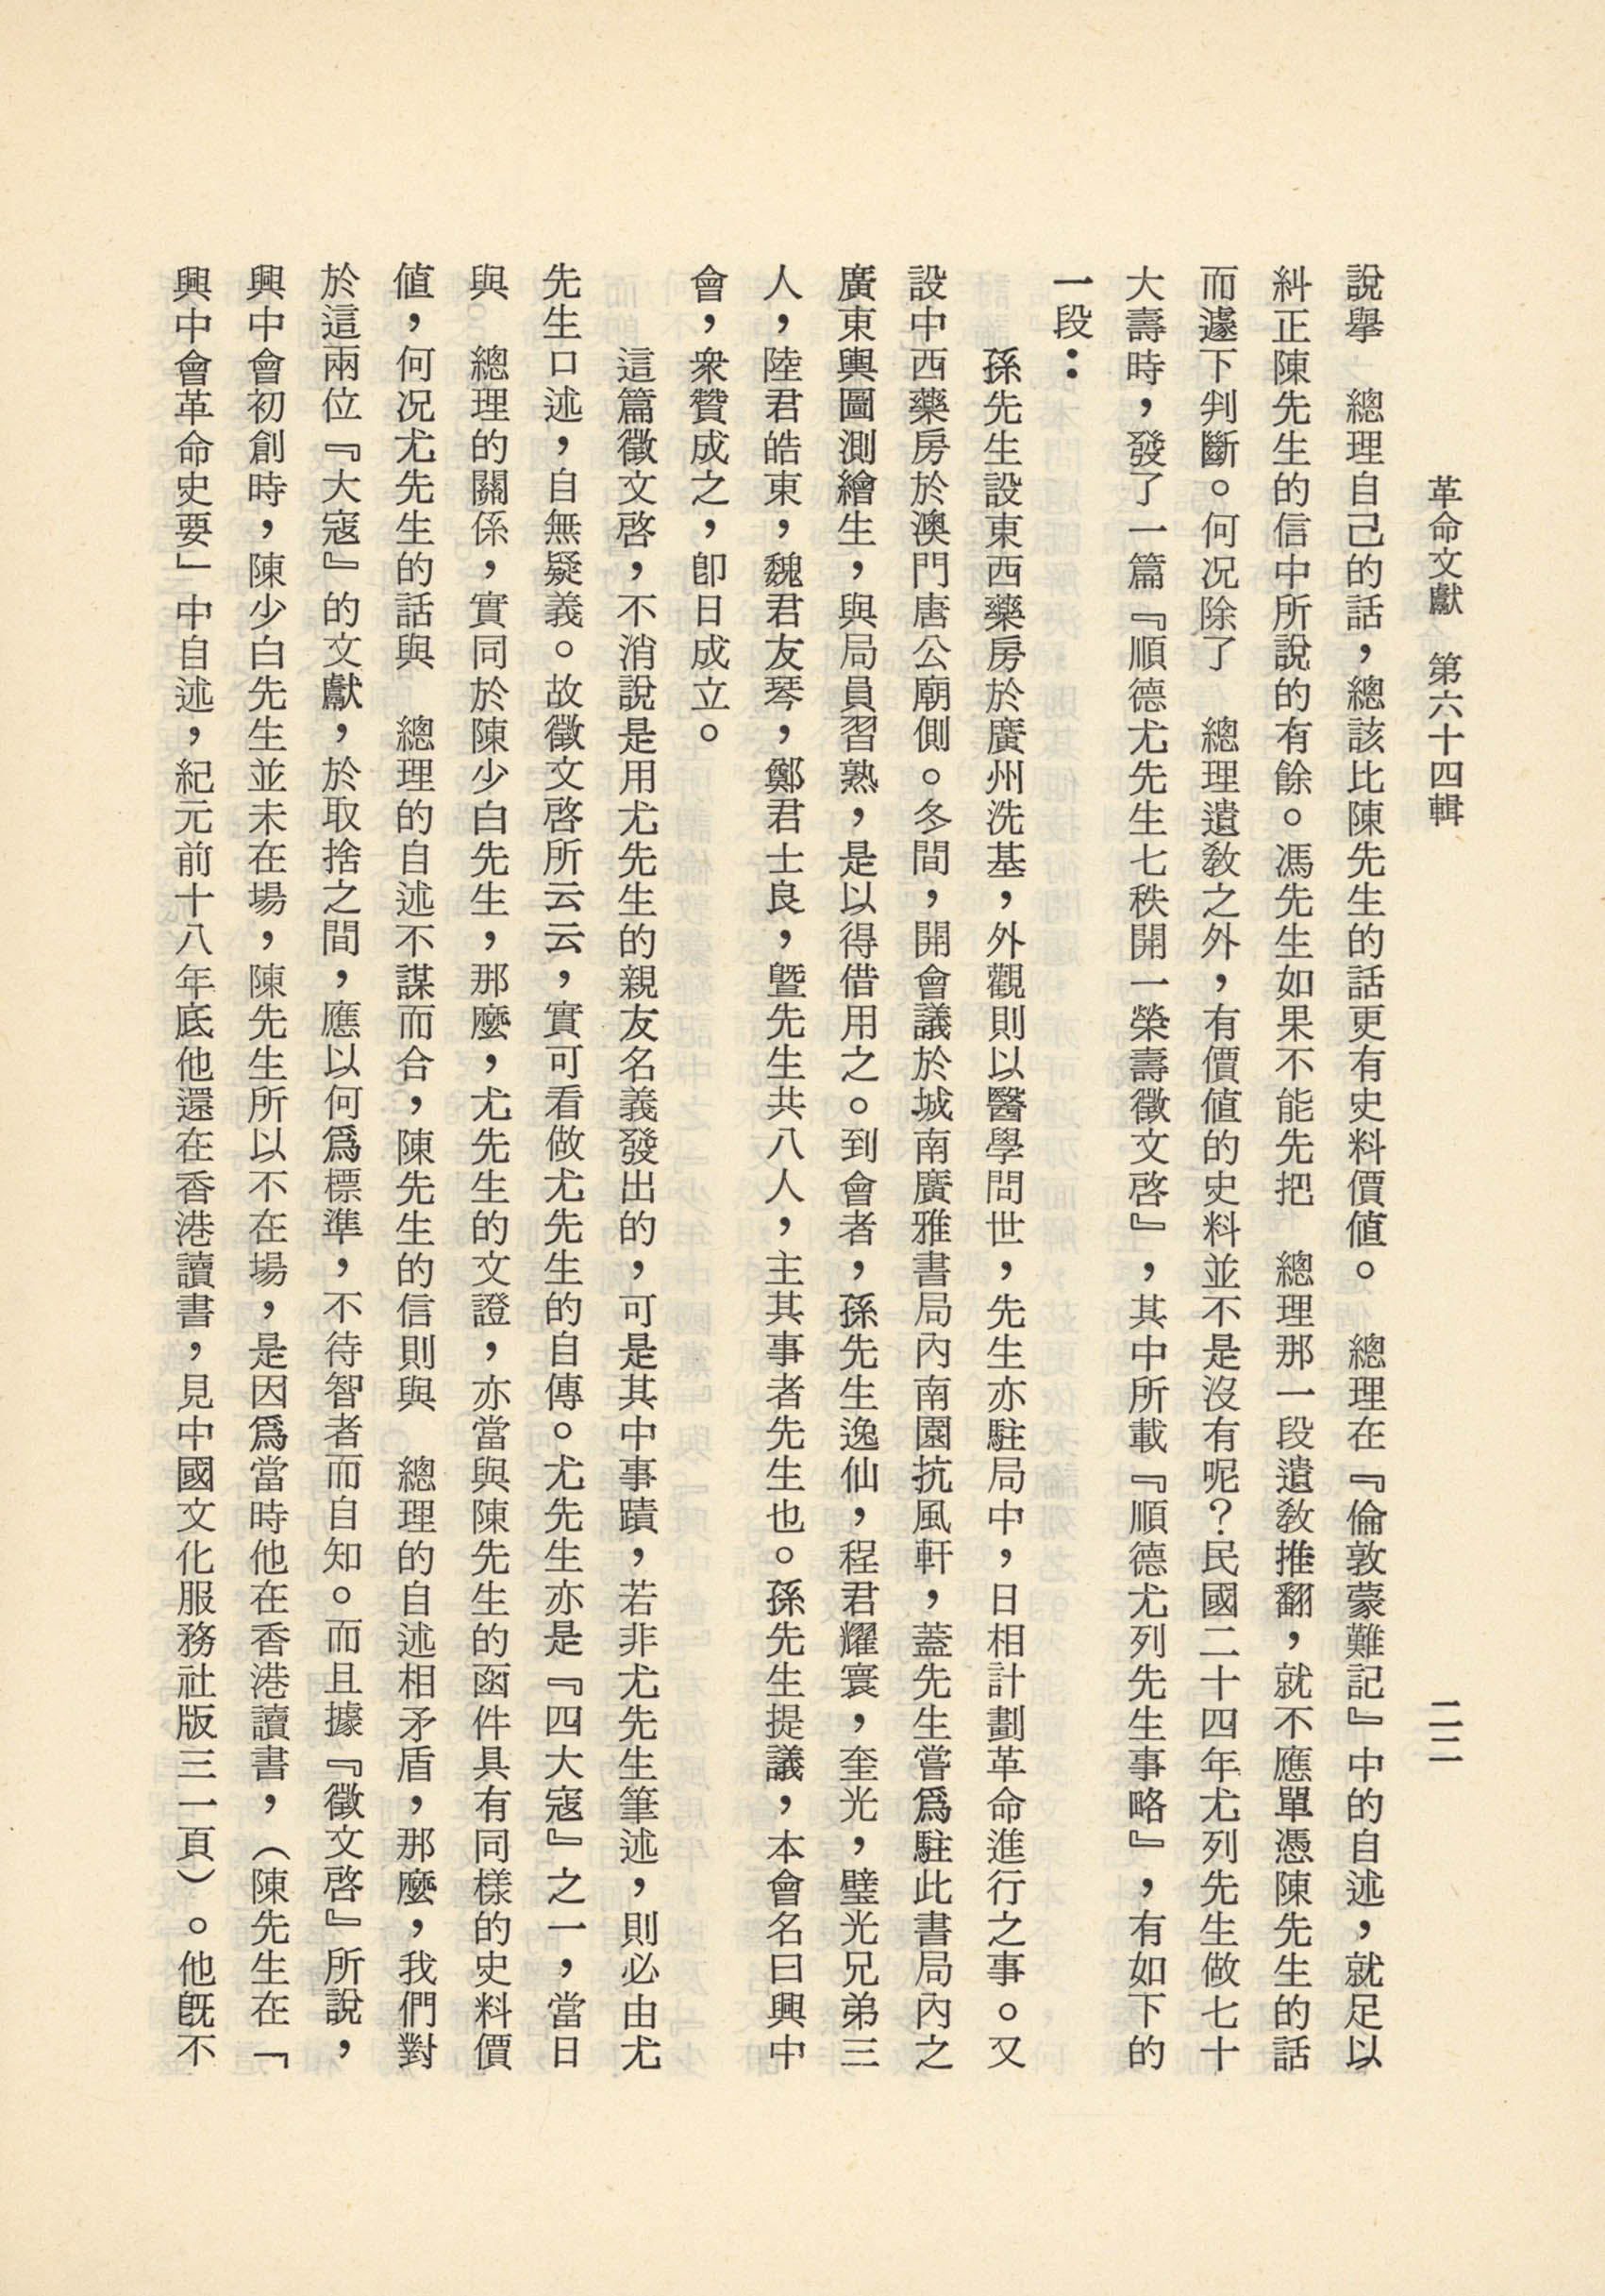 革命文獻　第六十四輯　二二
說舉　總理自己的話，總該比陳先生的話更有史料價値。　總理在『倫敦蒙難記』中的自述，就足以
糾正陳先生的信中所說的有餘。馮先生如果不能先把　總理那一段遺敎推翻，就不應單憑陳先生的話
而遽下判斷。何况除了　總理遺敎之外，有價値的史料並不是沒有呢？民國二十四年尤列先生做七十
大壽時，發了一篇『順德尤先生七秩開一榮壽徵文啓』，其中所載『順德尤列先生事略』，有如下的
一段：
孫先生設東西藥房於廣州洗基，外觀則以醫學問世，先生亦駐局中，日相計劃革命進行之事。又
設中西藥房於澳門唐公廟側。冬間，開會議於城南廣雅書局內南園抗風軒，蓋先生嘗爲駐此書局內之
廣東輿圖測繪生，與局員習熟，是以得借用之。到會者，孫先生逸仙，程君耀寰，奎光，璧光兄弟三
人，陸君皓東，魏君友琴，鄭君士良，曁先生共八人，主其事者先生也。孫先生提議，本會名曰興中
會，衆贊成之，卽日成立。
這篇徵文啓，不消說是用尤先生的親友名義發出的，可是其中事蹟，若非尤先生筆述，則必由尤
先生口述，自無疑義。故徵文啓所云云，實可看做尤先生的自傳。尤先生亦是『四大寇』之一，當日
與　總理的關係，實同於陳少白先生，那麼，尤先生的文證，亦當與陳先生的函件具有同樣的史料價
値，何况尤先生的話與　總理的自述不謀而合，陳先生的信則與　總理的自述相矛盾，那麼，我們對
於這兩位『大寇』的文獻，於取捨之間，應以何爲標準，不待智者而自知。而且據『徵文啓』所說，
興中會初創時，陳少白先生並未在場，陳先生所以不在場，是因爲當時他在香港讀書，（陳先生在「
興中會革命史要」中自述，紀元前十八年底他還在香港讀書，見中國文化服務社版三一頁）。他旣不